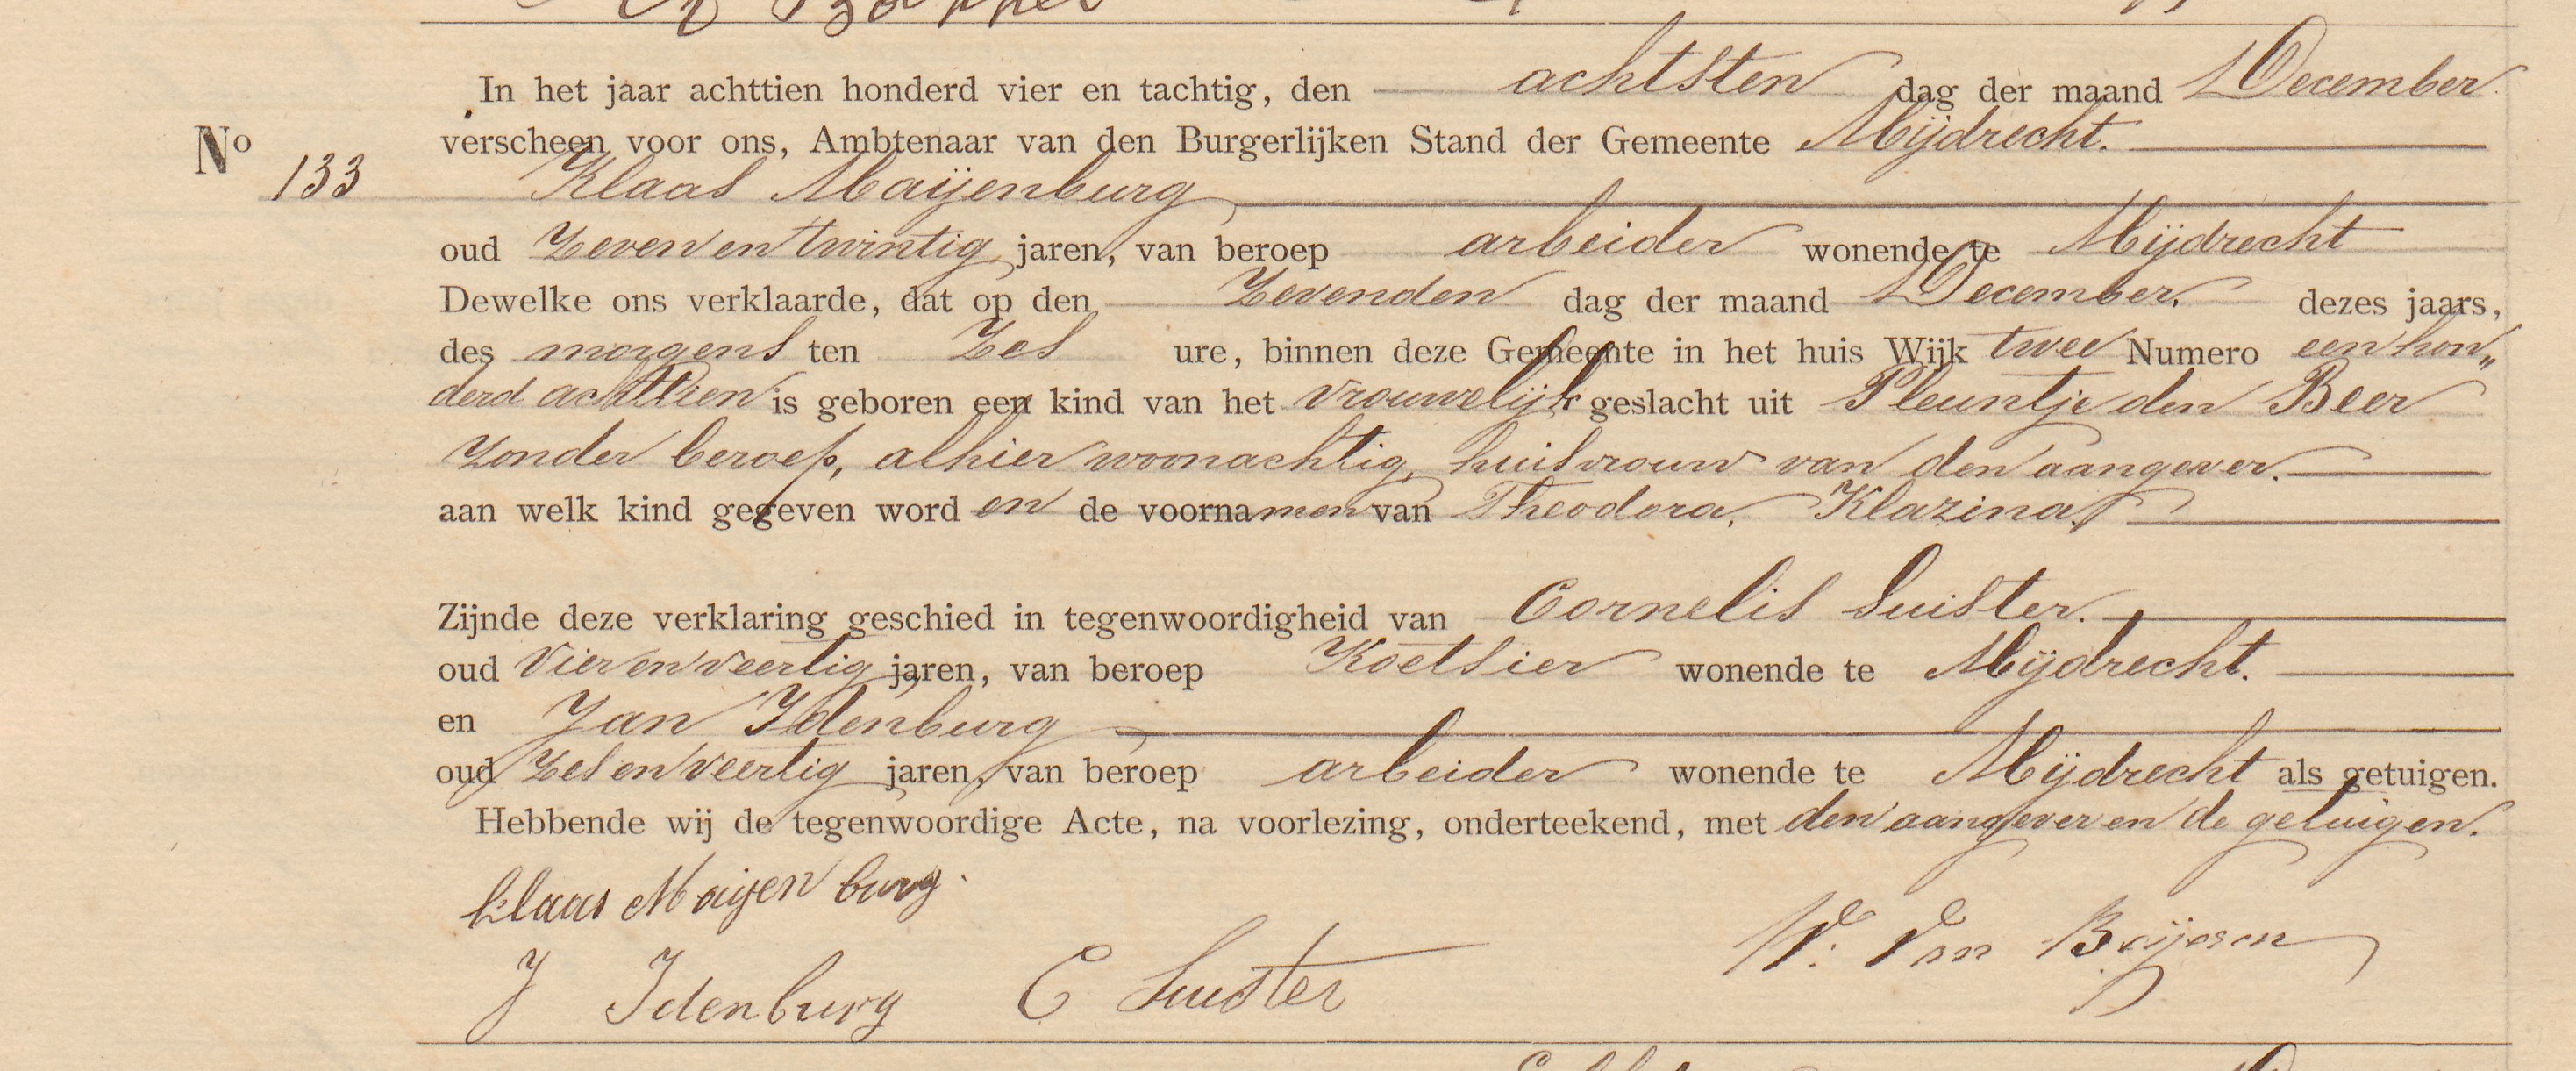 Bakker
In het jaar achttien honderd vier en tachtig, den achtsten dag der maand December
verscheen voor ons, Ambtenaar van den Burgerlijken Stand der Gemeente Mijdrecht.
No 133 Klaas Maijenburg
oud Zeven en twintig jaren, van beroep arbeider wonende te Mijdrecht
Dewelke ons verklaarde, dat op den Zevenden dag der maand December, dezes jaars,
des morgens ten Zes ure, binnen deze Gemeente in het huis Wijk twee Numero een hon„
derd achttien is geboren een kind van het vrouwelijk geslacht uit Pleuntje den Beer
zonder beroep, alhier woonachtig, huisvrouw van den aangever.
aan welk kind gegeven word en de voornamen van Theodora, Klazina,
Zijnde deze verklaring geschied in tegenwoordigheid van Cornelis Suister.
oud Vier en veertig jaren, van beroep Koetsier wonende te Mijdrecht.
en Jan Idenburg
oud Zes en veertig jaren, van beroep arbeider wonende te Mijdrecht als getuigen.
Hebbende wij de tegenwoordige Acte, na voorlezing, onderteekend, met den aangever en de getuigen.
Klaas Maijenburg.
J Idenburg C Suister W. Van Beijeren